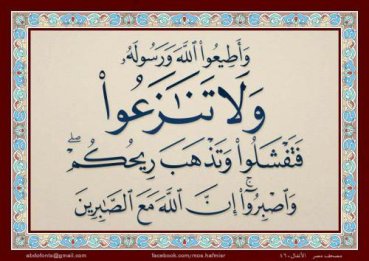 وَأَطِيعُوا۟ ٱللَّهَ وَرَسُولَهُۥ
وَلَا تَنَـٰزَعُوا۟
فَتَفْشَلُوا۟ وَتَذْهَبَ رِيحُكُمْ ۖ
وَٱصْبِرُوٓا۟ ۚ إِنَّ ٱللَّهَ مَعَ ٱلصَّـٰبِرِينَ
مصطفى مصر الأنفال-٤٦
facebook.com/mos.hafnisr
abdofonts@gmail.com